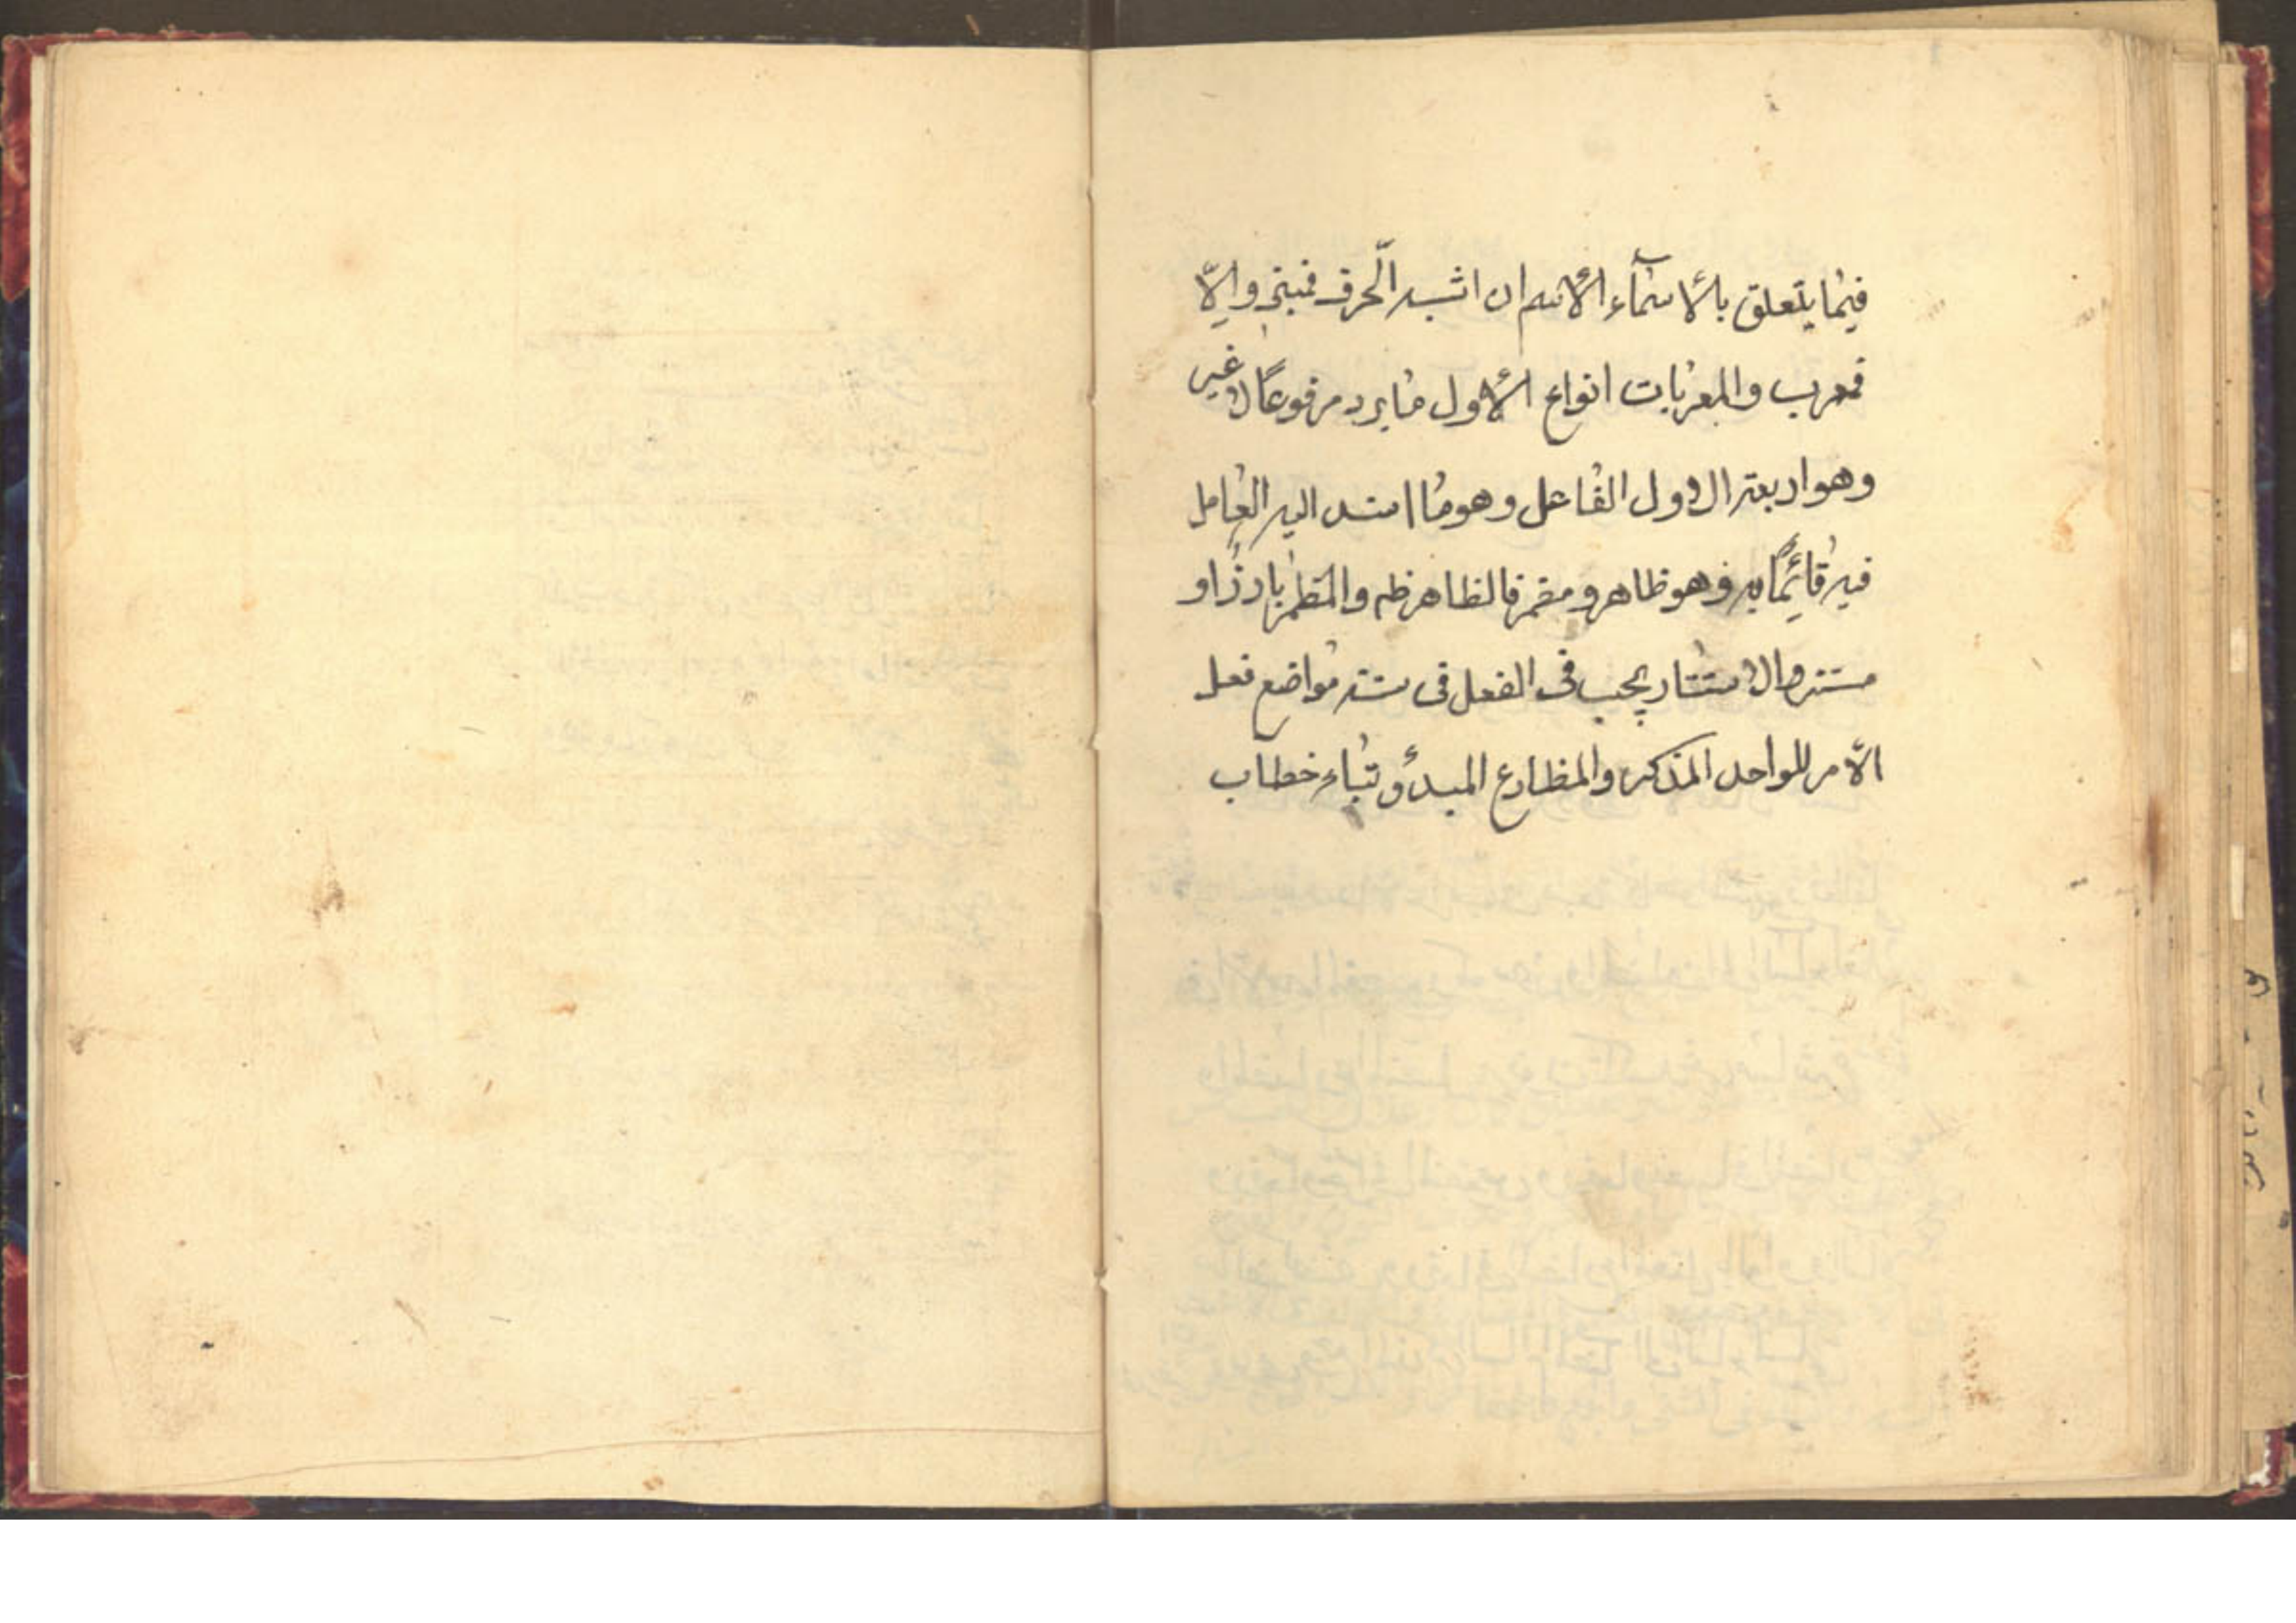 فيما يتعلق بالأسمآء الأسم ان اشبه الّحرف فمبني والّا
فمعرب والمعربات انواع الأول ما يرد مرفوعًا لا غير
وهو اربعة الاول الفاعل وهو ما اسند اليه العامل
فيه قائمًا به وهو ظاهر و مضمر فالظاهر ظه والمظمر بارز او
مستتر والاستتار يجب فى الفعل فى ستة مواضع فعل
الأمر للواحد المذكر والمظارع المبدؤ بتاء خطاب